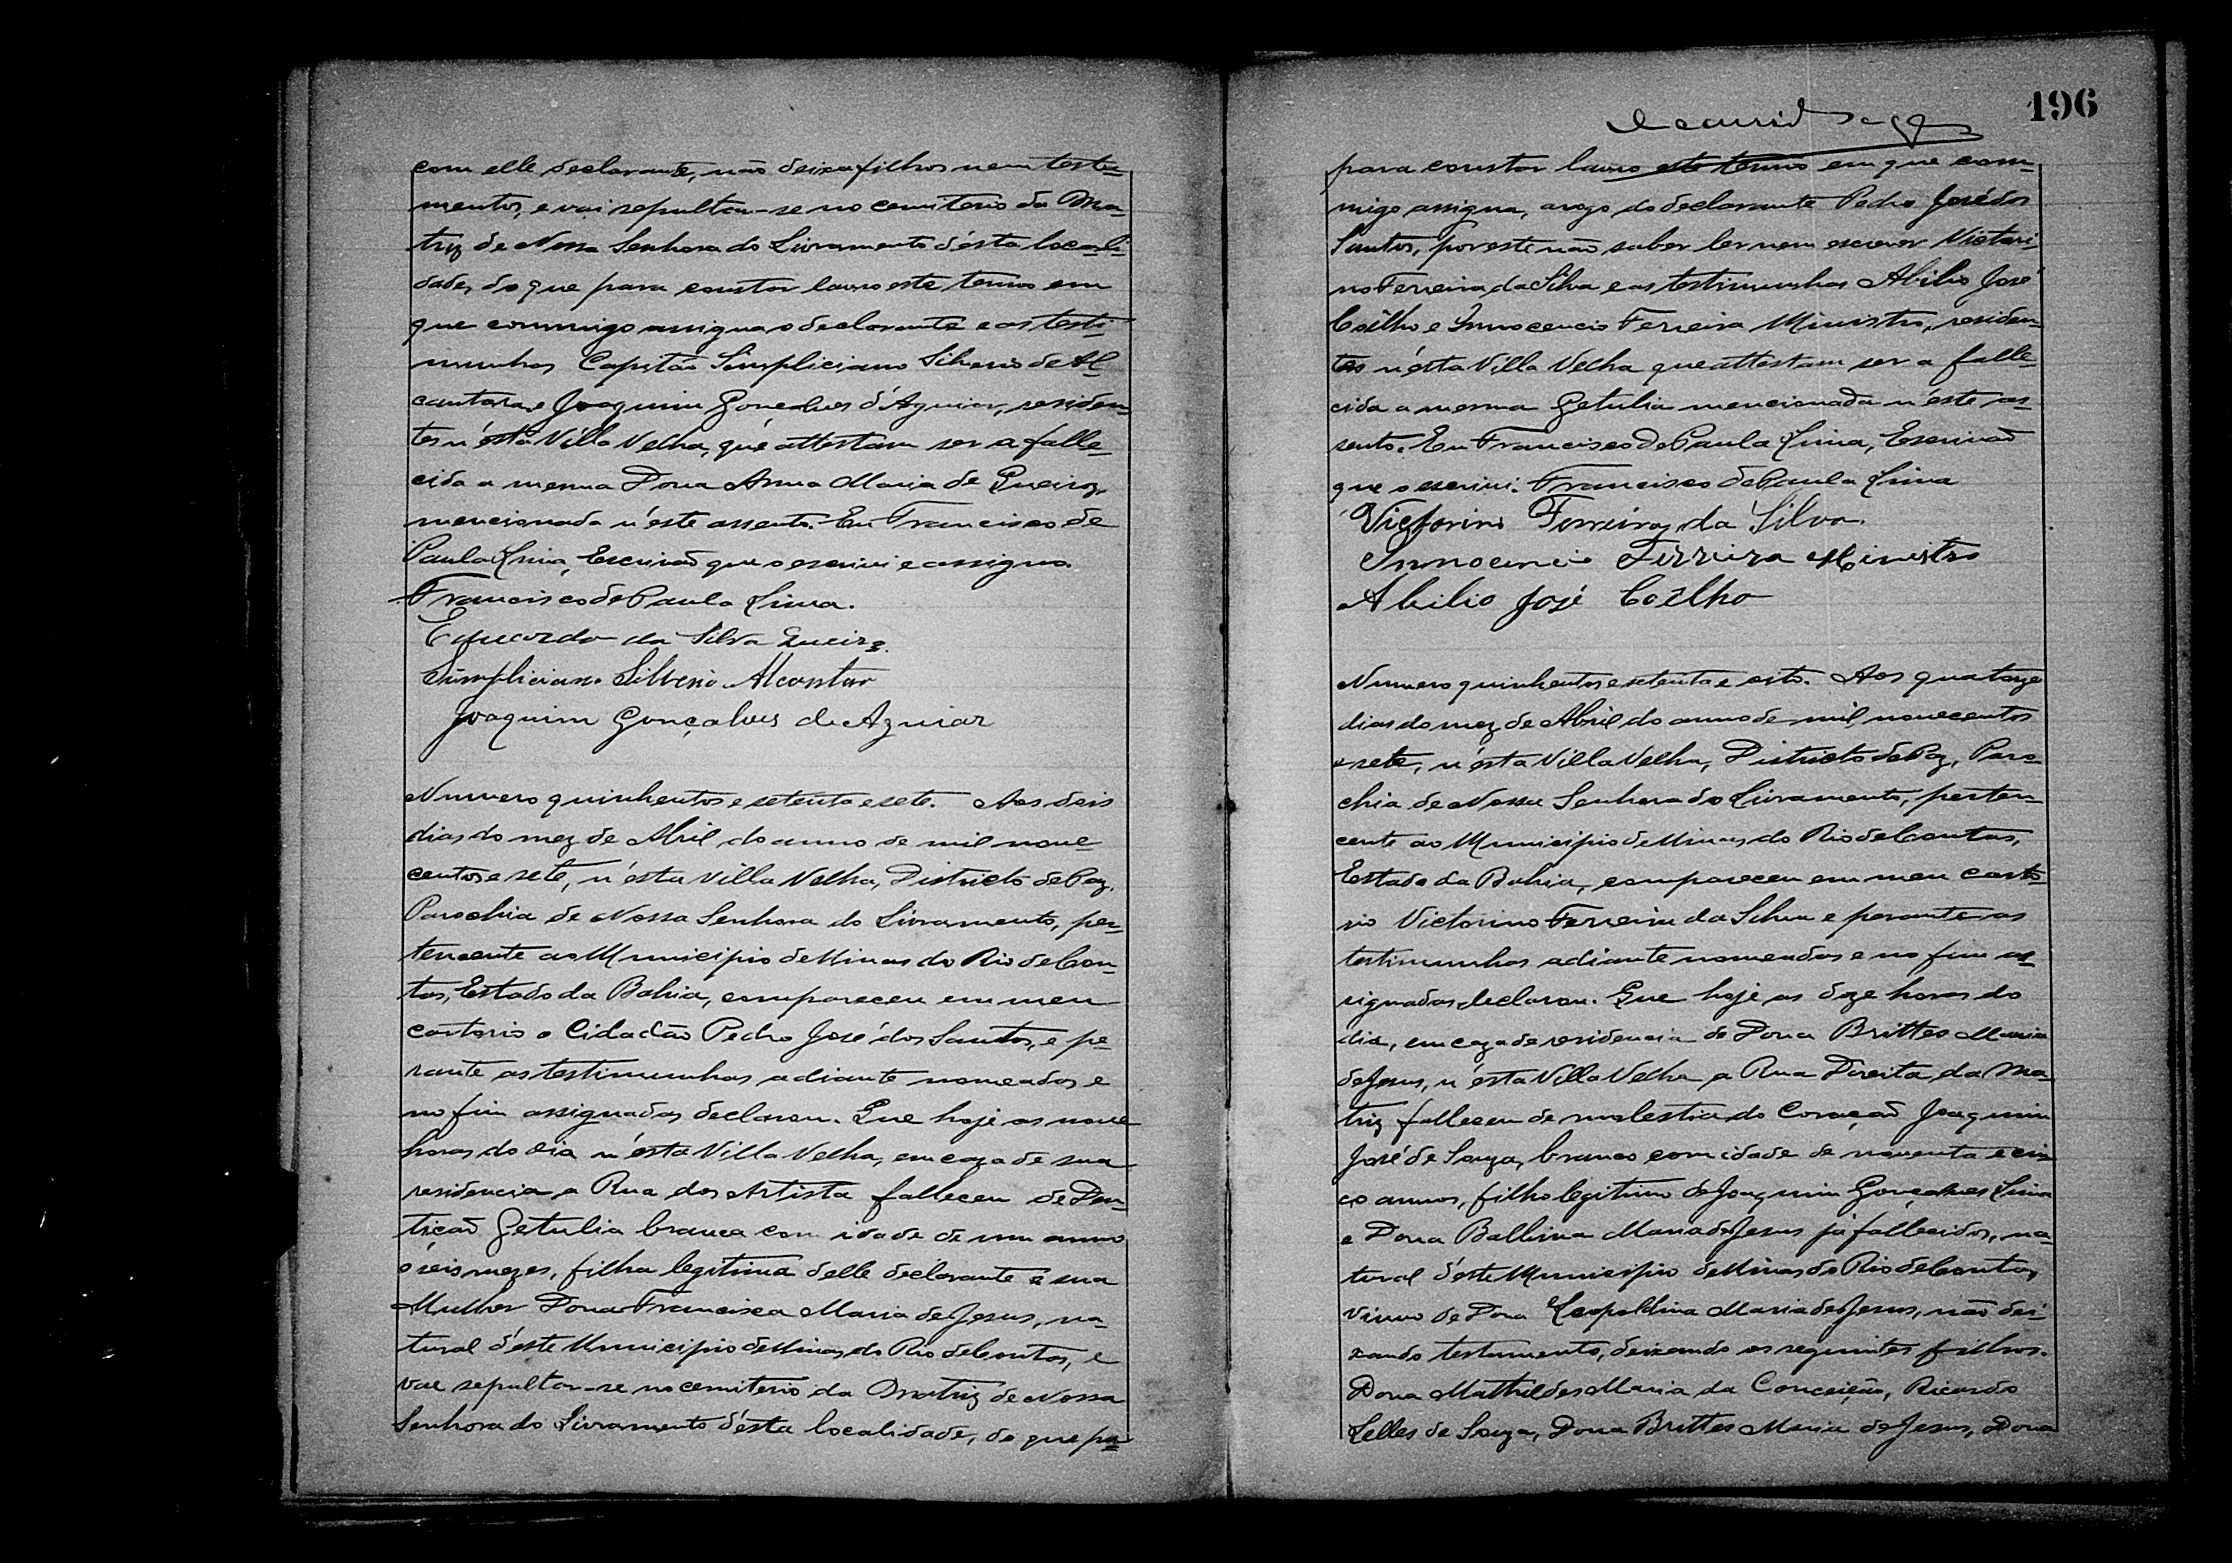 com elle declarante, não deixa filhos nem testa-
mentos, e vai sepultar-se no cemiterio da Ma-
triz de Nossa Senhora do Livramento d'ésta locali-
dade, do que para constar lavro este termo em
que commigo assigna o declarante e as testi-
munhas Capitão Simpliciano Silverio de Al-
cantara, e Joaquim Gonçalves d'Aguiar, residen-
tes n'ésta Villa Velha, que attestam ser a falle-
cida a mesma Dona Anna Maria de Queiroz,
mencionada n'éste assento. Eu Francisco de
Paula Lima, Escrivão que o escrivi e assigno.
Francisco de Paula Lima.
da Silva Queiroz.
Simpliciano Silverio Alcantara
Joaquim Gonçalves de Aguiar
Numero quinhentos e setenta e sete. Aos dois
dias do mez de Abril do anno de mil nove-
centos e sete, n'ésta Villa Velha, Districto de Paz,
Parochia de Nossa Senhora do Livramento, per-
tencente ao Municipio de Minas do Rio de Con-
tas, Estado da Bahia, compareceu em meu
cartorio o Cidadão Pedro José dos Santos, e pe-
rante as testimunhas adiante nomeadas e
no fim assignadas declarou. Que hoje as nove
horas do dia n'ésta Villa Velha, em caza de sua
residencia a Rua dos Artista falleceu de Den-
tição Getulia branca com idade de um anno
e seis mezes, filha legitima delle declarante e sua
Mulher Dona Francisca Maria de Jesus, na-
tural d'éste Municipio de Minas do Rio de Contas, e
vae sepultar-se no cemiterio da Matriz de Nossa
Senhora do Livramento d'ésta localidade, do que pa-
196
para constar lavro este termo em que com-
migo assigna, arogo do declarante Pedro José dos
Santos, por este não saber ler nem escrever Victori-
no Ferreira da Silva e as testimunhas Abilio José
Coêlho e Innocencio Ferreira Ministro, residen-
tes n'ésta Villa Velha que attestam ser a falle-
cida a mesma Getulia mencionada n'éste as-
sento. Eu Francisco de Paula Lima, Escrivão
que o escrivi. Francisco de Paula Lima
Victorino Ferreira da Silva.
Innocencio Ferreira Ministro
Abilio José Coêlho
Numero quinhentos e setenta e oito. Aos quatorze
dias do mez de Abril do anno de mil novecentos
e sete, n'ésta Villa Velha, Districto de Paz, Paro-
chia de Nossa Senhora do Livramento, perten-
cente ao Municipio de Minas do Rio de Contas,
Estado da Bahia, compareceu em meu carto-
rio Victorino Ferreira da Silva e perante as
testimunhas adiante nomeadas e no fim as-
signadas, declarou. Que hoje as doze horas do
dia, em caza de residencia de Dona Brittes Maria
de Jesus, n'ésta Villa Velha a Rua Direita da Ma-
triz falleceu de molestia do Coração Joaquim
José de Souza, branco com idade de noventa e cin-
co annos, filho legitimo de Joaquim Gonçalves Lima
e Dona Balbina Maria de Jesus já fallecidos, na-
tural d'éste Municipio de Minas do Rio de Contas,
viuvo de Dona Leopoldina Maria de Jesus, não dei-
xando testamento, deixando os seguintes filhos.
Dona Mathildes Maria da Conceição, Ricardo
Lelles de Souza, Dona Brittes Maria de Jesus, Dona